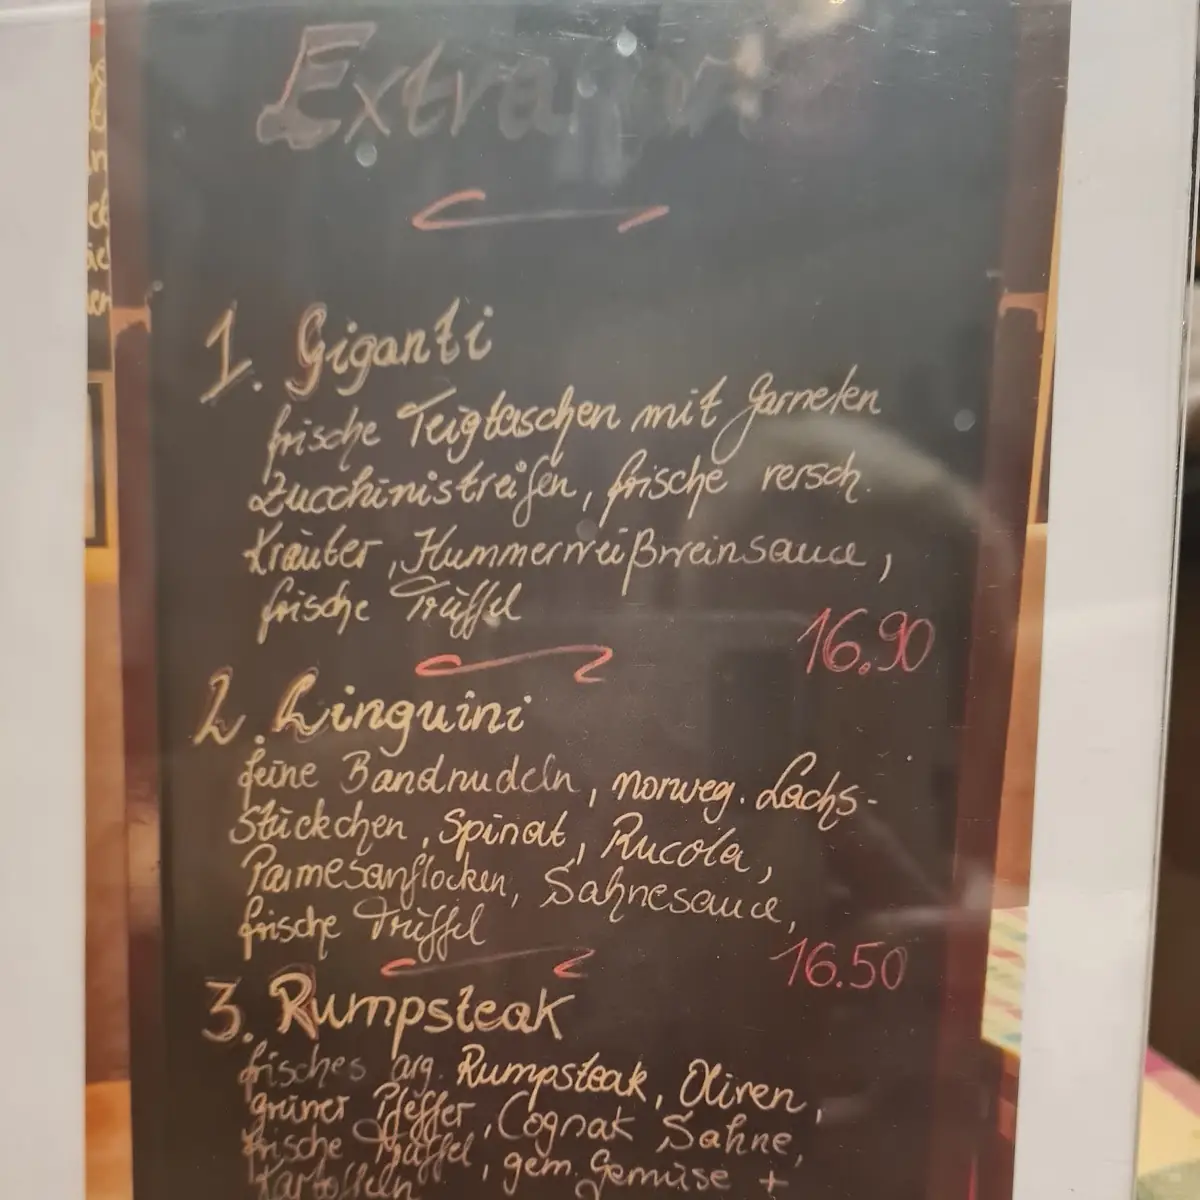 1. Giganti
frische Teigtaschen mit Garnelen
Zucchinistreifen, frische versch.
Kräuter, Hummerweißweinsauce,
frische Trüffel
16.90
2. Linguini
feine Bandnudeln, norweg. Lachs-
stückchen, Spinat, Rucola,
Parmesanflocken, Sahnesauce,
frische Trüffel
16.50
3. Rumpsteak
frisches arg. Rumpsteak, Oliven,
grüner Pfeffer, Cognak Sahne,
frische Trüffel, gem. Gemüse +
Kartoffeln